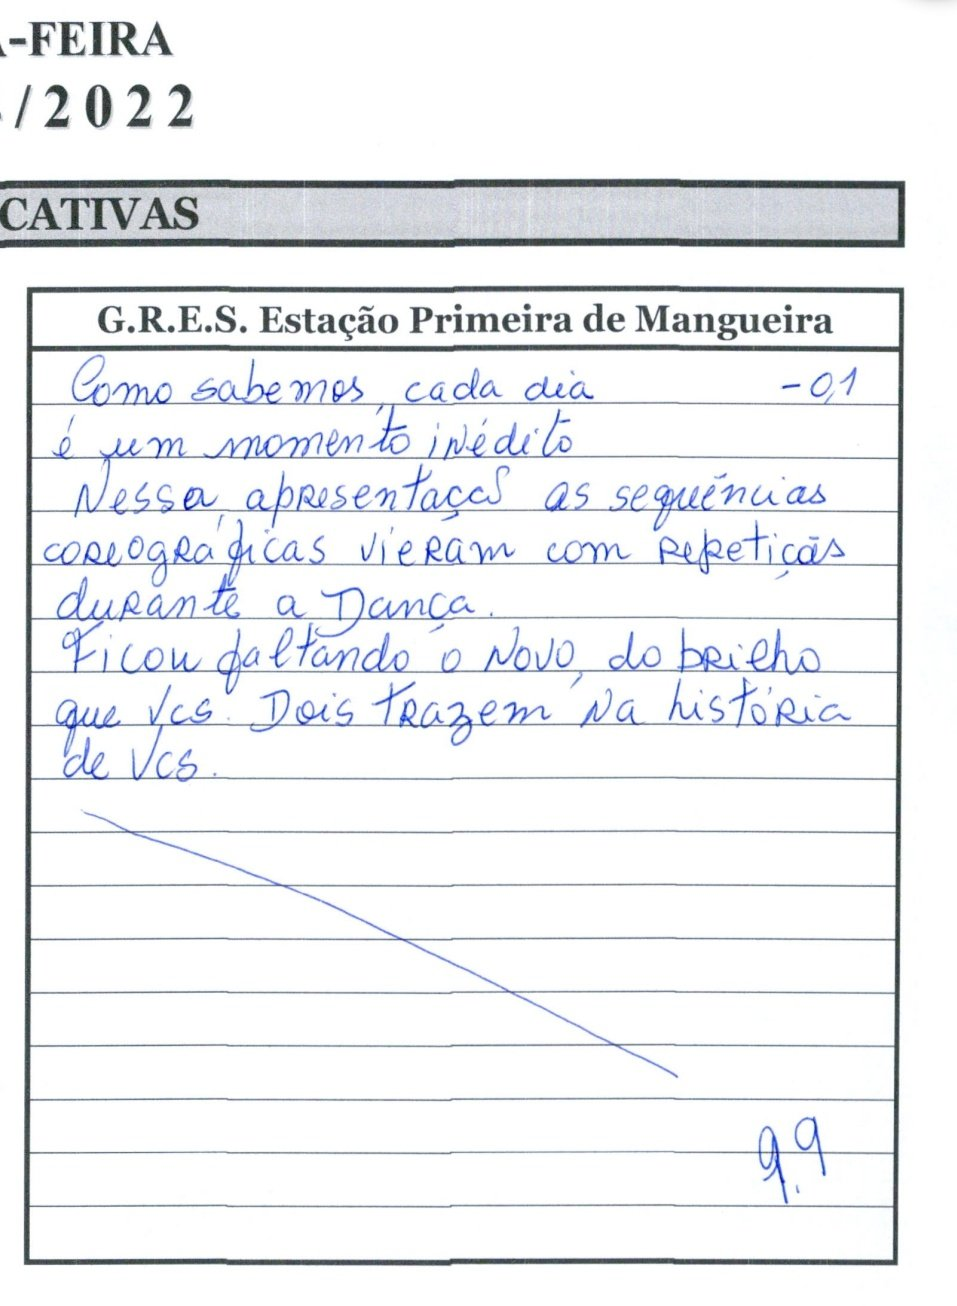 -FEIRA
/2022
CATIVAS
G.R.E.S. Estação Primeira de Mangueira
Como sabemos, cada dia -0,1
é um momento inédito
Nessa, apresentação as sequências
coreográficas vieram com repetições
durante a Dança.
Ficou faltando o novo, do brilho
que Vcs. Dois trazem na história
de Vcs.
9.9